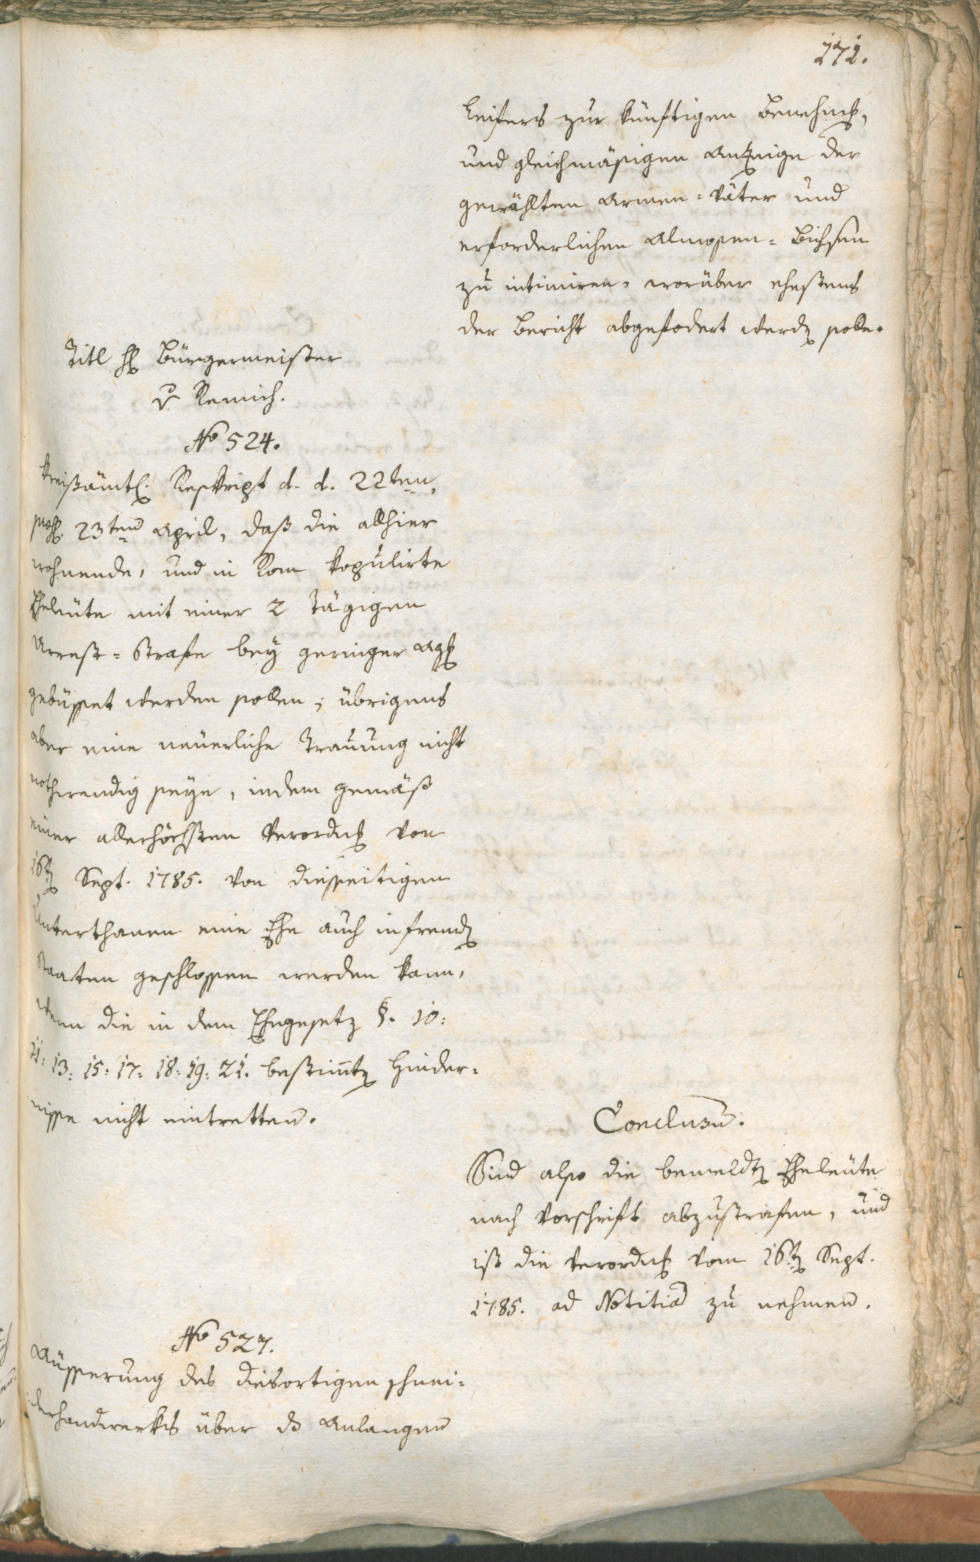 271.
Leifers zur künftigen Benehmung,
und gleichmäßigen Anzeige der
gewählten Armen-Väter und
erforderlichen Almosen-Bichsen
zu intimiren, worüber ehestens
der Bericht abgefodert werden solle.
Titl H Bürgermeister
v. Remich.
No 524.
Kreißämtl. Reskript d. d. 22ten,
23ten April, daß die allhier
wohnende, und in Rom kopulirte
Eheleute mit einer 2 tägigen
Arrest-Strafe bey geringer
gebüsset werden sollen; übrigens
aber eine neuerliche Trauung nicht
nothwendig seye, indem gemäß
einer allerhöchsten Verordng von
16ten Sept. 1785. von diesseitigen
Unterthanen eine Ehe auch in fremden
Staaten geschlossen werden kann,
wenn die in dem Ehegesetz §. 10:
11: 13: 15: 17: 18: 19: 21. bestimten Hinder-
nisse nicht eintretten.
Conclusum.
Sind also die bemeldten Eheleute
nach Vorschrift abzustrafen, und
ist die Verordng vom 16ten Sept.
1785. ad Notitiam zu nehmen.
No 527.
Äusserung des diesortigen Schnei-
derhandwerks über ds Anlangen